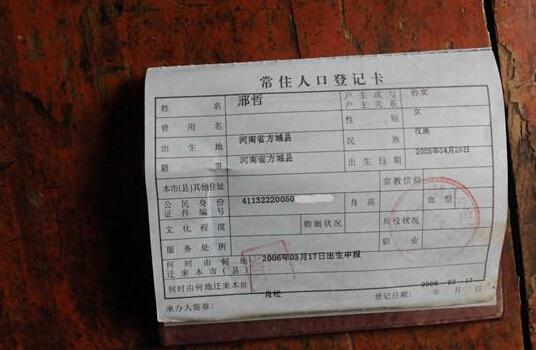 常住人口登记卡
姓名 邢哲 户主或与户主关系 孙女
曾用名 性别 女
出生地 河南省方城县 民族 汉族
籍贯 河南省方城县 出生日期 2005年04月28日
本市(县)其他住址 宗教信仰
公民身份证件编号 41132220050 身高 血型
文化程度 婚姻状况 兵役状况
服务处所 职业
何时由何地迁来本市(县) 2006年03月17日出生申报
何时由何地迁来本址
承办人签章: 肖松 登记日期: 2006年03月17日